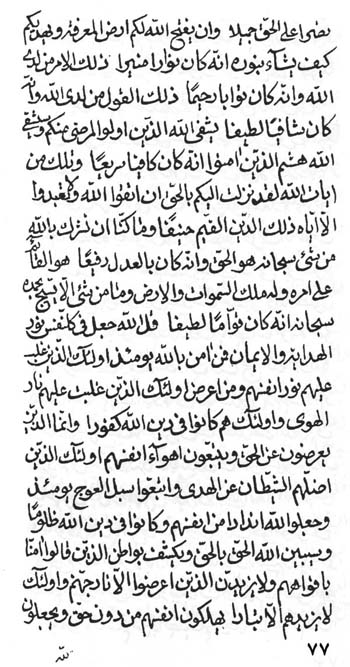 نصرا على الحق جميلا وان يفتح الله لكم ارض المعرفة ويهديكم
كيف يشآء بنوره انه كان نوارا منيرا ذلك الامر من لدى
الله وانه كان توابا رحيمًا ذلك القول من لدى الله وانه
كان شافيًا لطيفا يشفى الله الذين اولو المرضى منكم ويشفى
الله هم الذين امنوا انه كان كافيا سريعا وتلك من
ايات الله لقد نزلت اليكم بالحق ان اتقوا الله ولا تعبدوا
الا اياه ذلك الدين القيم حنيفا وما كنا ان نشرك بالله
من شئ سبحانه هو الحق وانه كان بالعدل رفيعًا هو القائم
على امره وله ملك السموات والارض وما من شئ الا يسبح بحمده
سبحانه انه كان قوآمًا لطيفا قل الله جعل فى كل نفس نور
الهداية والايمان فمن امن بالله يومئذ اولئك الذين غلب
عليهم نور انفسهم ومن اعرض اولئك الذين غلبت عليهم نار
الهوى واولئك هم كانوا فى دين الله كفورا وانما الذين
يعرضون عن الحق ويتبعون اهوآء انفسهم اولئك الذين
اضلهم الشيطان عن الهدى واتبعوا سبل العوج يومئذ
وجعلوا الله اندادا من انفسهم وكانوا فى دين الله ظلومًا
وسيبين الله الحق بالحق ويكشف بواطن الذين قالوا امنا
بافواههم ولا يزيدن الذين اعرضوا الا نار جهنم واولئك
لا يزيدهم الا تبارا يهلكون انفسهم من دون حق ويجعلون
لله
٧٧